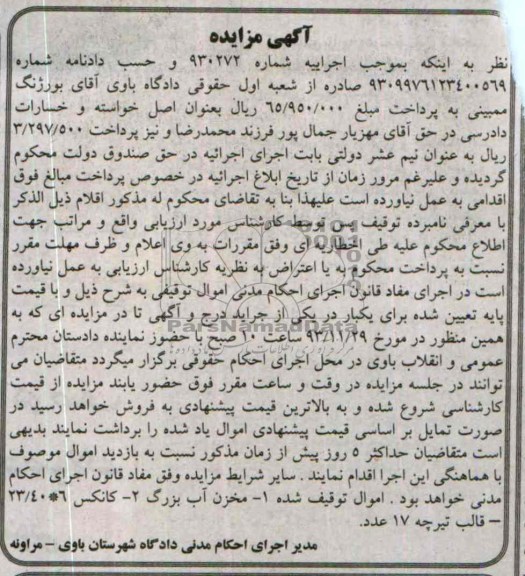 آگهی مزایده
نظر به اینکه بموجب اجراییه شماره ۹۳۰۲۷۲ و حسب دادنامه شماره
۹۳۰۹۹۷۶۱۲۳۴۰۰۵۶۹ صادره از شعبه اول حقوقی دادگاه باوی آقای بورژنگ
ممبینی به پرداخت مبلغ ۶۵/۹۵۰/۰۰۰ ریال بعنوان اصل خواسته و خسارات
دادرسی در حق آقای مهزیار جمال پور فرزند محمدرضا و نیز پرداخت ۳/۲۹۷/۵۰۰
ریال به عنوان نیم عشر دولتی بابت اجرای اجرائیه در حق صندوق دولت محکوم
گردیده و علیرغم مرور زمان از تاریخ ابلاغ اجرائیه در خصوص پرداخت مبالغ فوق
اقدامی به عمل نیاورده است علیهذا بنا به تقاضای محکوم له مذکور اقلام ذیل الذکر
با معرفی نامبرده توقیف پس توسط کارشناس مورد ارزیابی واقع و مراتب جهت
اطلاع محکوم علیه طی اخطاریه ای وفق مقررات به وی اعلام و ظرف مهلت مقرر
نسبت به پرداخت محکوم به یا اعتراض به نظریه کارشناس ارزیابی به عمل نیاورده
است در اجرای مفاد قانون اجرای احکام مدنی اموال توقیفی به شرح ذیل و با قیمت
پایه تعیین شده برای یکبار در یکی از جراید درج و آگهی تا در مزایده ای که به
همین منظور در مورخ ۹۳/۱۱/۲۹ ساعت ۱۰ صبح با حضور نماینده دادستان محترم
عمومی و انقلاب باوی در محل اجرای احکام حقوقی برگزار میگردد متقاضیان می
توانند در جلسه مزایده در وقت و ساعت مقرر فوق حضور یابند مزایده از قیمت
کارشناسی شروع شده و به بالاترین قیمت پیشنهادی به فروش خواهد رسید در
صورت تمایل بر اساسی قیمت پیشنهادی اموال یاد شده را برداشت نمایند بدیهی
است متقاضیان حداکثر ۵ روز پیش از زمان مذکور نسبت به بازدید اموال موصوف
با هماهنگی این اجرا اقدام نمایند . سایر شرایط مزایده وفق مفاد قانون اجرای احکام
مدنی خواهد بود . اموال توقیف شده ۱- مخزن آب بزرگ ۲- کانکس ۶*۲۳/۴۰
– قالب تیرچه ۱۷ عدد.
مدیر اجرای احکام مدنی دادگاه شهرستان باوی – مراونه
ParsNamadData